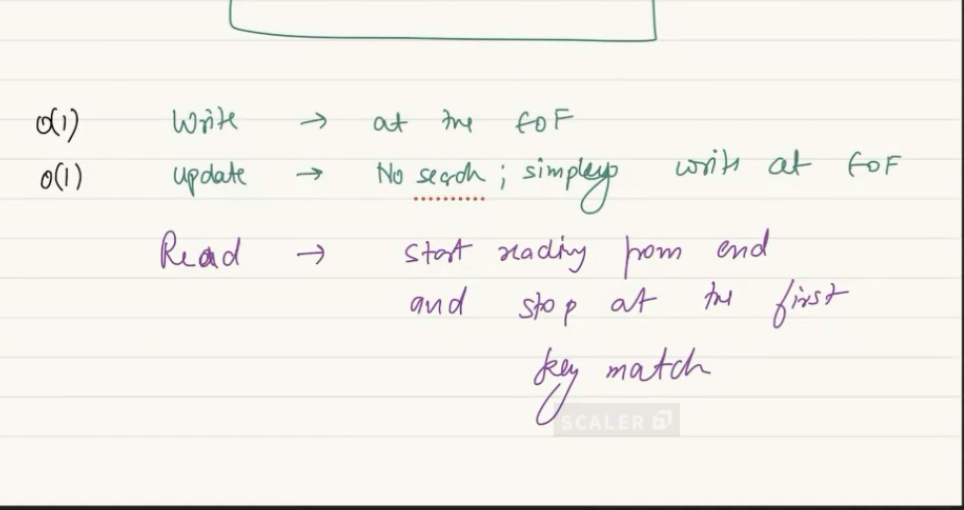 O(1) Write → at the EOF
O(1) update → No search ; simply write at EOF
Read → start reading from end
and stop at the first
key match
SCALER